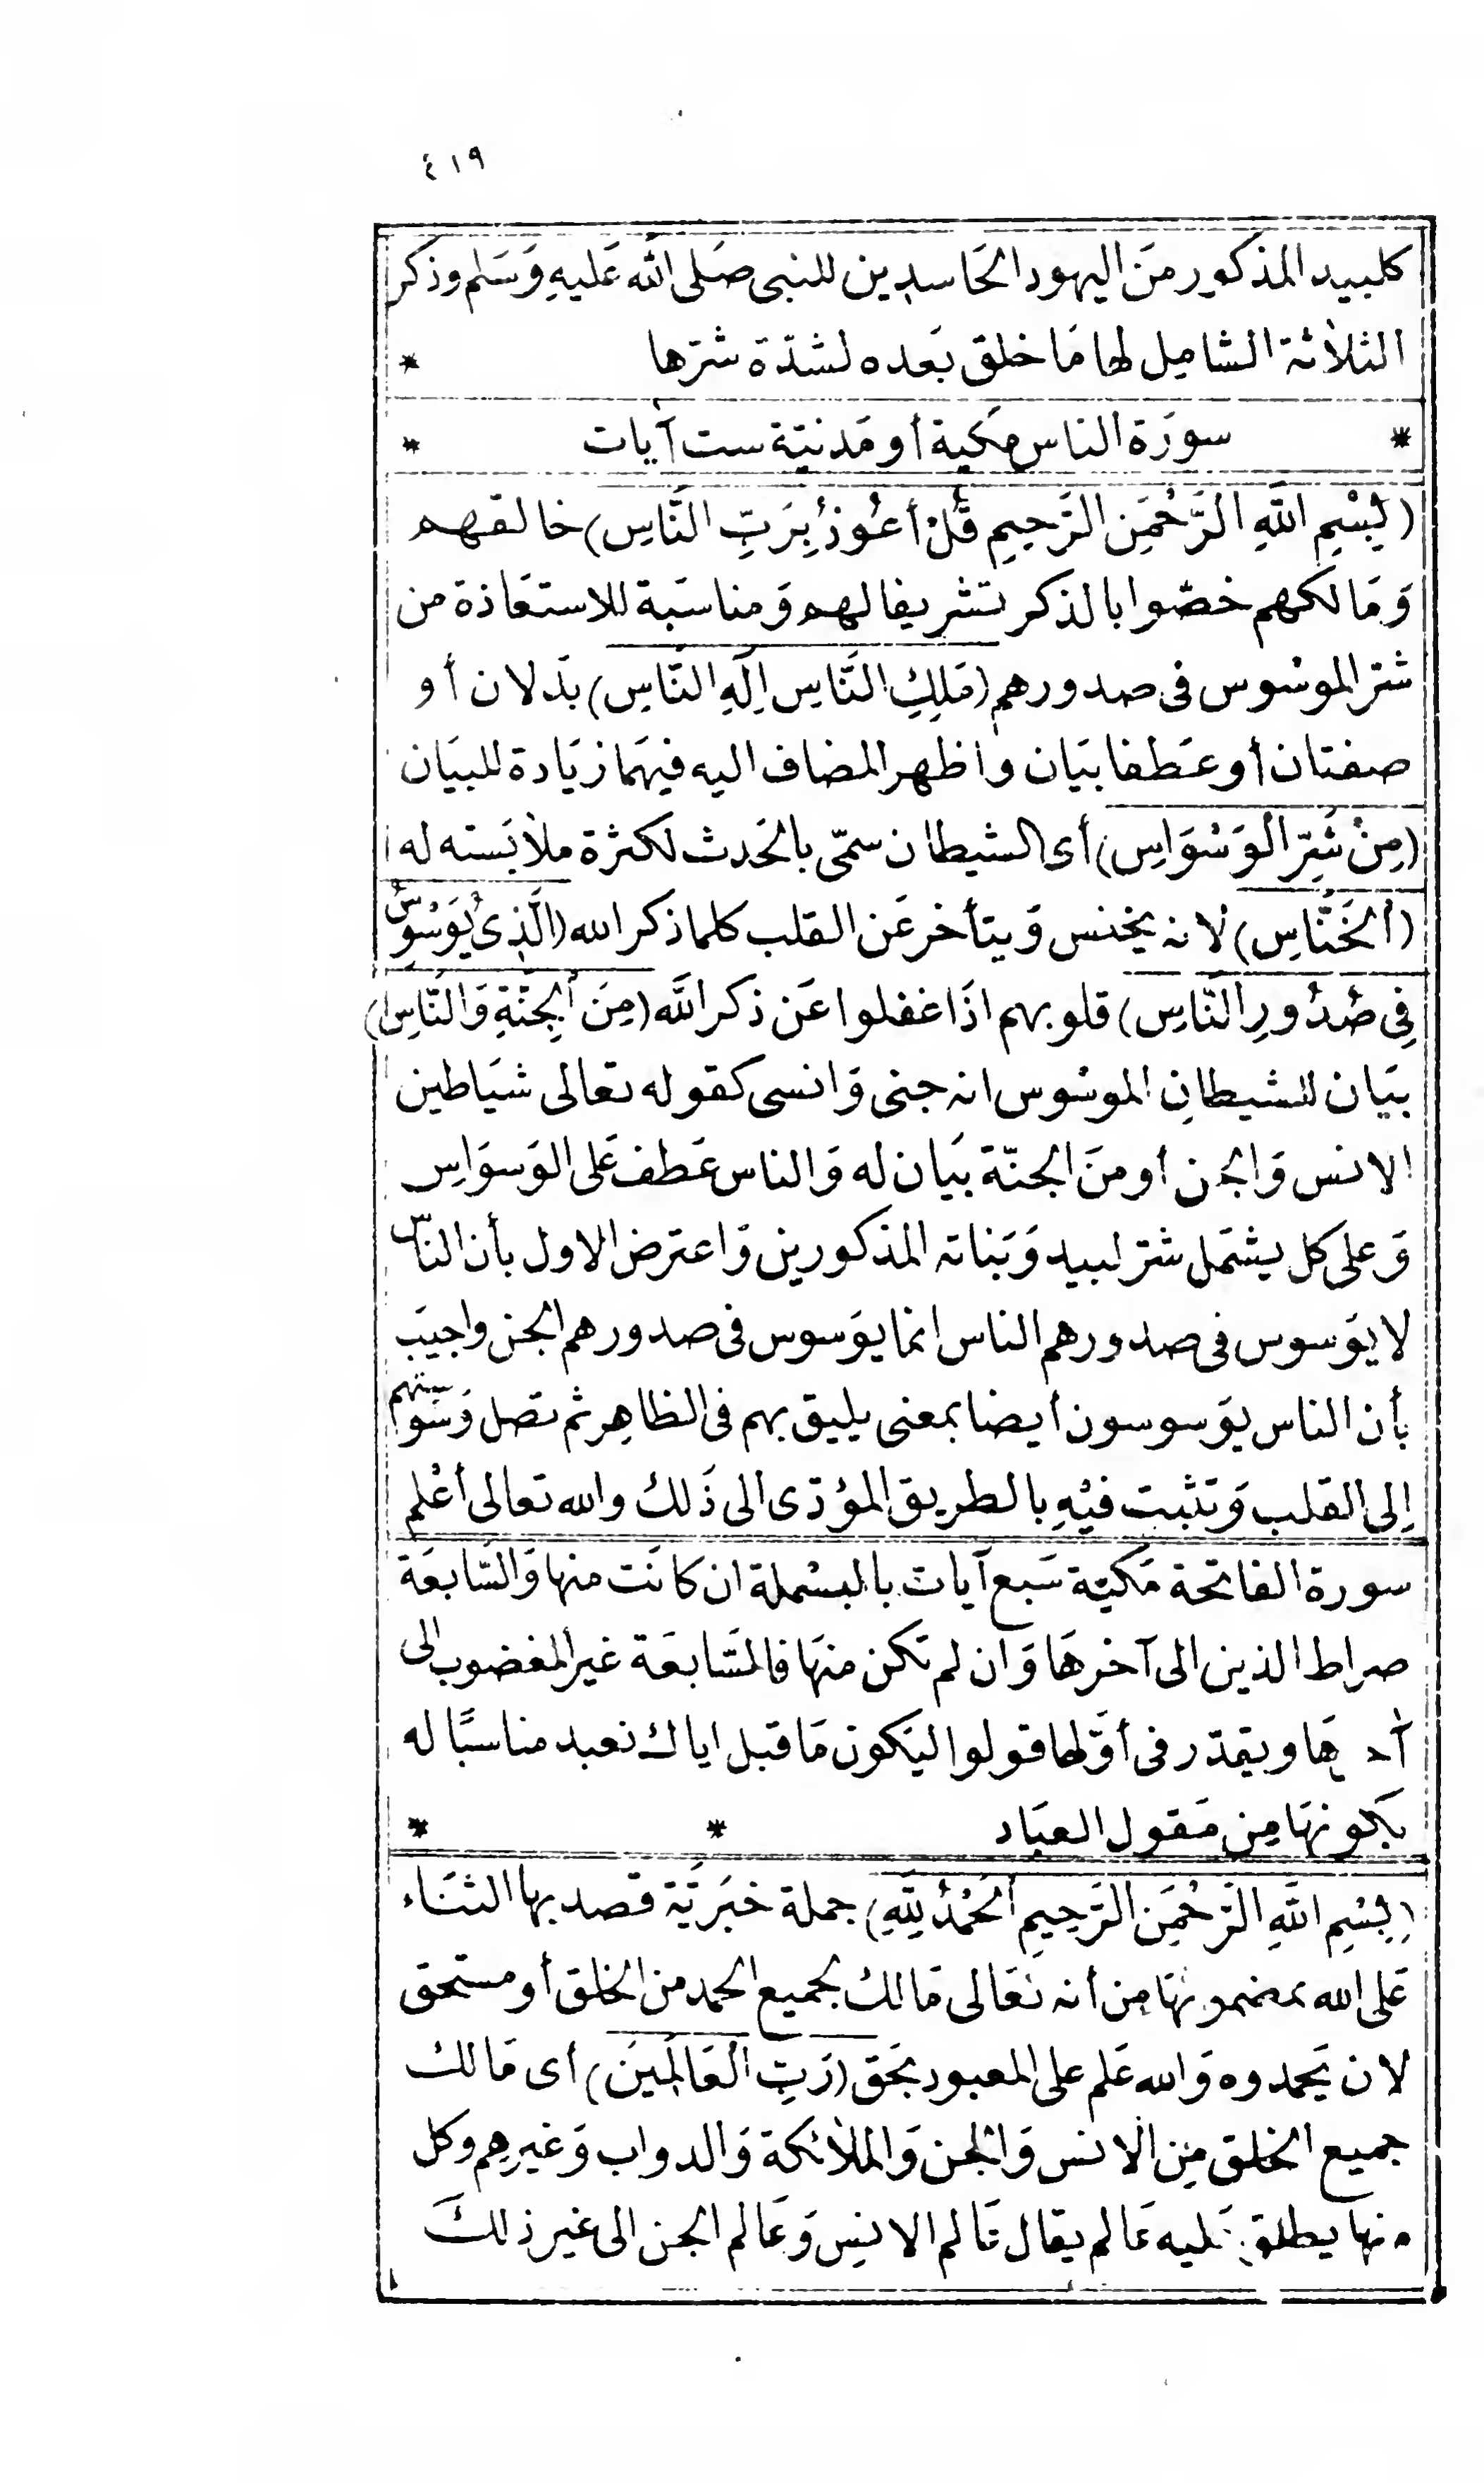 ٤١٩
كلبيد المذكور مَن اليهود الحَاسدِين للنبى صَلى الله عَليهِ وَسَلم وذكر
الثلاثة الشامِل لها مَا خلق بَعده لشدّة شرّها *
* سورَة الناس مَكية أو مَدنيّة ست آيات *
(بِسْمِ اللَّهِ الرَّحْمَنِ الرَّحِيمِ قُلْ أَعُوذُ بِرَبِّ النَّاسِ) خالقهم
وَمَالكهم خصّوا بالذكر تشريفا لهم وَمناسَبة للاستعَاذة من
شرّ الموسْوس فى صدورهم (مَلِكِ النَّاسِ اِلَهِ النَّاسِ) بدَلان أو
صفتان أو عَطفا بيَان واظهر المضاف اليه فيهمَا زيَادة للبيَان
(مِنْ شَرِّ الْوَسْوَاسِ) أى الشيطان سمّى بالحَدث لكثرة ملابَسته له
(اْلخَنَّاسِ) لانه يخنس وَيتأخر عَن القلب كلما ذكر الله (الَّذِى يُوَسْوِسُ
فِى صُدُورِ النَّاسِ) قلوبهم اذَا غفلوا عَن ذكر اللَّه (مِنَ الْجِنَّةِ وَالنَّاسِ)
بيَان للشيطانِ الموسْوس انه جنى وَانسى كقوله تعالى شيَاطين
الانس وَالجن أو منَ الجنّة بيَان له وَالناس عَطف عَلى الوَسوَاسِ
وَعلى كل يشتمل شرّ لبيد وَبَناته المذكورين وَاعترض الاول بأن الناس
لا يوَسوس فى صدورهم الناس انما يوَسوس فى صدورهم الجن واجيبَ
بأن الناس يوَسوسون أيضا بمعنى يليق بهم فى الظاهِر ثم تصل وَسْوَستهم
اِلى القلب وَتثبت فيْهِ بالطريق المؤدّى الى ذَلك والله تعالى أعْلم
سورة الفاتحة مَكيّة سَبع آيات بالبسْملة ان كانَت منها وَالسّابعَة
صراط الذين الى آخرهَا وَان لم تكن منهَا فالسَّابعَة غير المغضوب الى
آخرهَا ويقدّر فى أوّلها قولوا ليَكون مَا قبل اياك نعبد مناسبًا له
بكونهَا مِن مَقول العبَاد * *
(بِسْمِ اللَّهِ الرَّحْمَنِ الرَّحِيمِ الْحَمْدُ لِلَّهِ) جملة خبَريَّة قصد بها الثنَاء
عَلى الله بمضمونهَا مِن أنه تعَالى مَالك لجميع الحمد من الخلق أو مستحق
لان يَحمدوه وَالله عَلم على المعبود بحَق (رَبِّ الْعَالَمِينَ) أى مَالك
جميع الخلق مِن الانس وَالجن وَالملائكة وَالدواب وَغيرهِم وكل
منها يطلق عَليه عَالم يقال عَالم الانسِ وَعَالم الجن الى غير ذلكَ